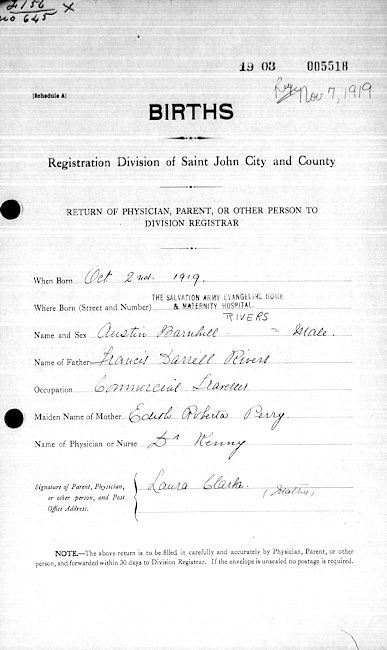 2156 X
no 645
19 03 005518
[Schedule A]
Reg Nov 7, 1919
BIRTHS
Registration Division of Saint John City and County
RETURN OF PHYSICIAN, PARENT, OR OTHER PERSON TO
DIVISION REGISTRAR
When Born Oct 2nd. 1919.
THE SALVATION ARMY EVANGELINE HOME
Where Born (Street and Number) & MATERNITY HOSPITAL
RIVERS
Name and Sex Austin Barnhill - Male.
Name of Father Francis Darrell Rivers
Occupation Commercial Traveller
Maiden Name of Mother Edith Roberta Perry.
Name of Physician or Nurse Dr Kenny
Signature of Parent, Physician, Laura Clarke.
or other person, and Post (Matron)
Office Address.
NOTE.—The above return is to be filled in carefully and accurately by Physician, Parent, or other
person, and forwarded within 30 days to Division Registrar. If the envelope is unsealed no postage is required.